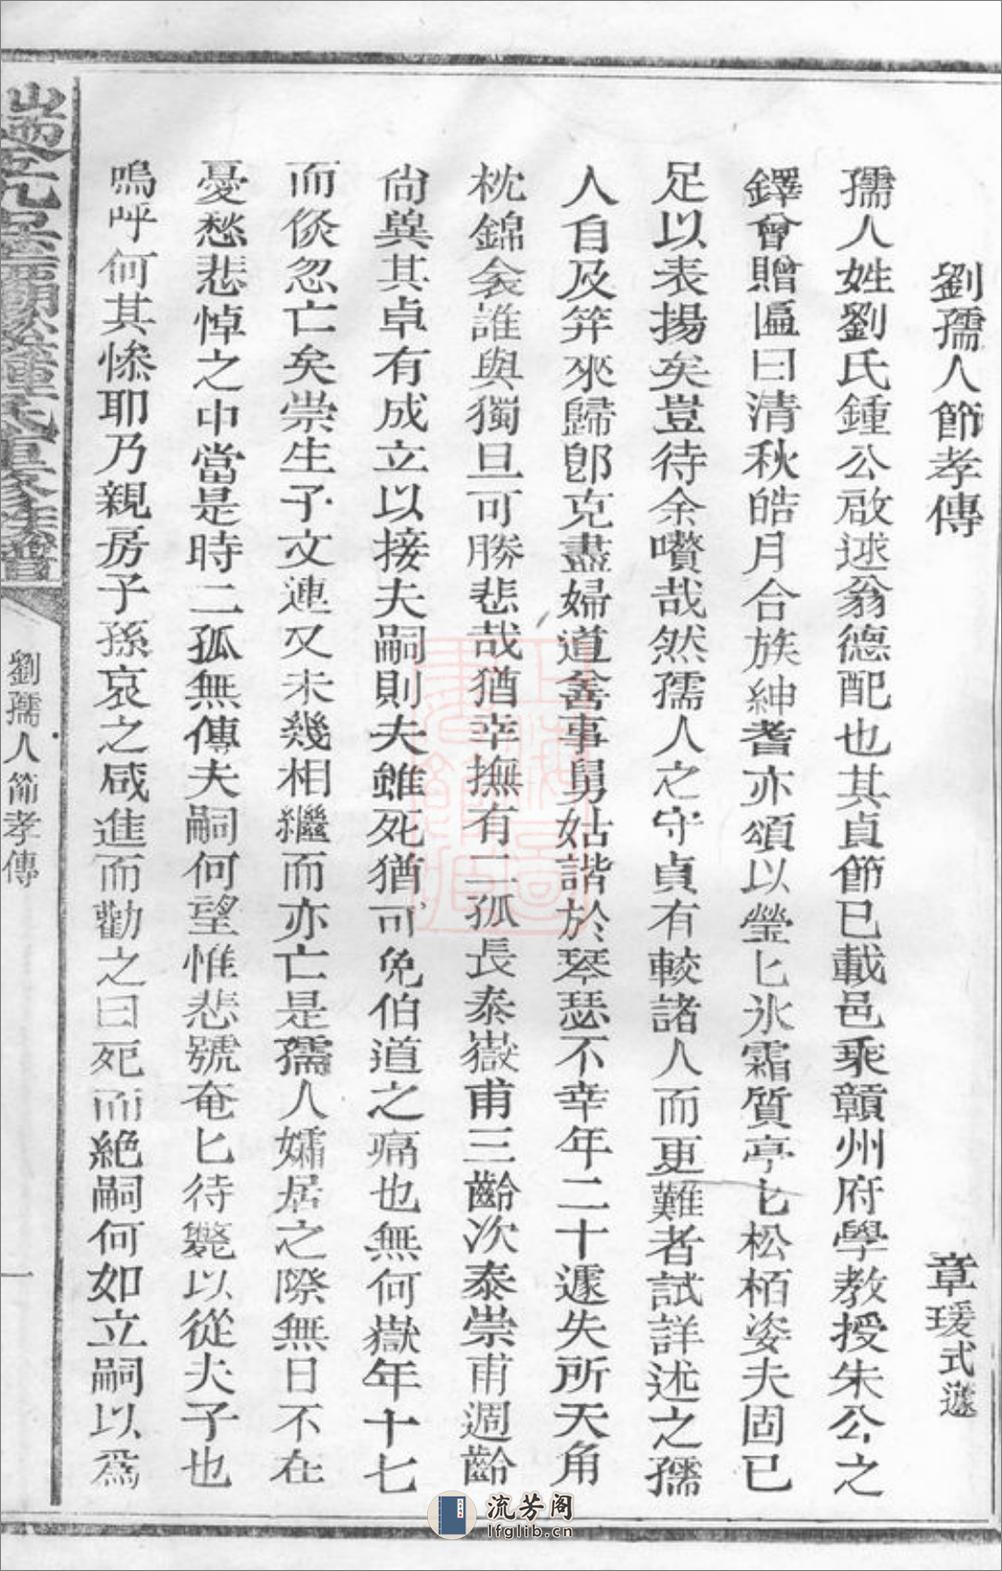 劉孺人節孝傳
章瑗式
孺人姓劉氏鍾公啟逑翁德配也其貞節已載邑乘贛州府學教授朱公之
鐸曾贈匾曰清秋皓月合族紳耆亦頌以瑩匕氷霜質亭匕松栢姿夫固已
足以表揚矣豈待余嚽哉然孺人之守貞有較諸人而更難者試詳述之孺
人自及笄來歸卽克盡婦道善事舅姑諧於琴瑟不幸年二十遽失所天角
枕錦衾誰與獨旦可勝悲哉猶幸撫有二孤長泰嶽甫三齡次泰崇甫週齡
尙兾其卓有成立以接夫嗣則夫雖死猶可免伯道之痛也無何嶽年十七
而倏忽亡矣崇生子文連又未幾相繼而亦亡是孺人孀居之際無日不在
憂愁悲悼之中當是時二孤無傳夫嗣何望惟悲號奄匕待斃以從夫子也
嗚呼何其慘耶乃親房子孫哀之咸進而勸之曰死而絕嗣何如立嗣以爲
劉孺人節孝傳
一
流芳阁
lfglib.cn